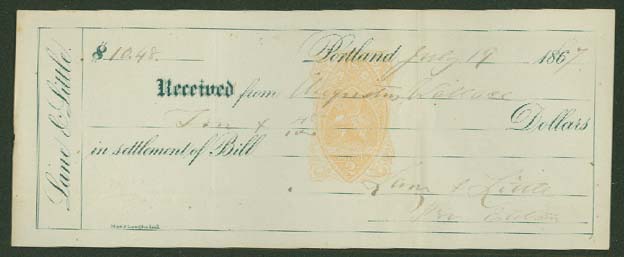 Lane & Little.
$ 10.48. Portland July 19 1867
Received from Augustus Wallace
Ten & 48/100 Dollars
in settlement of Bill
Lane & Little